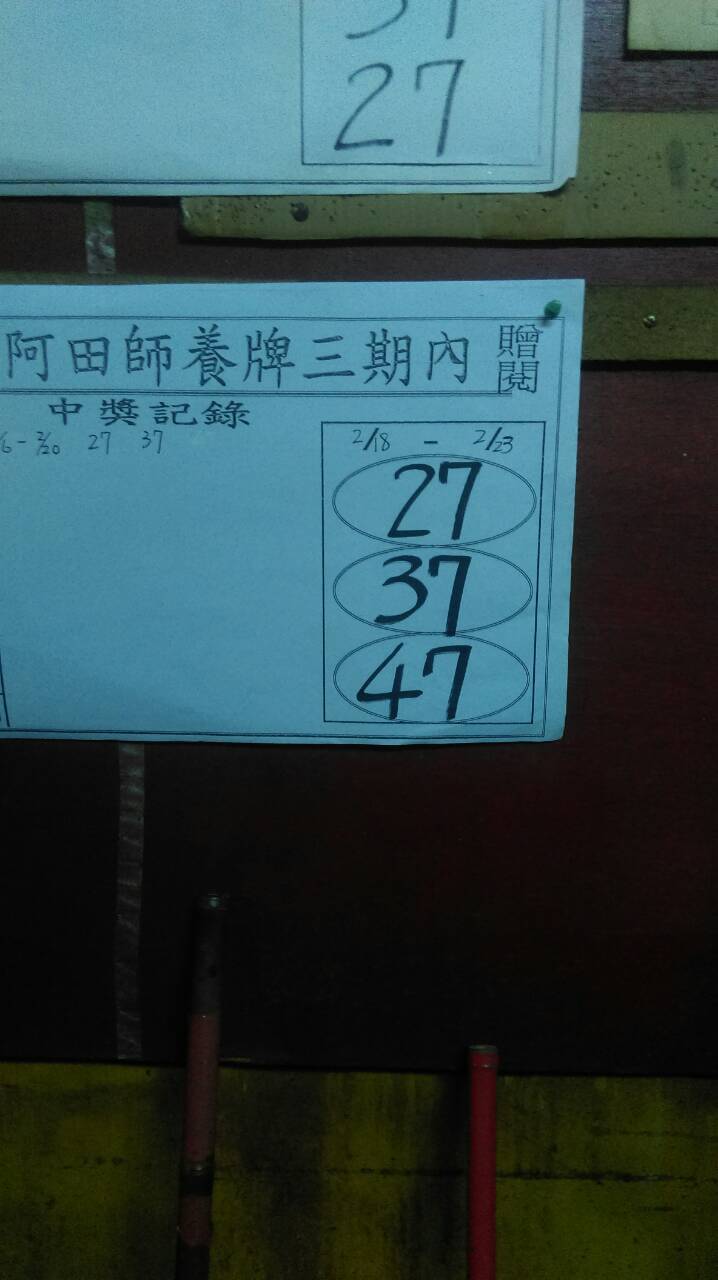 27
阿田師養牌三期內 贈閱
中獎記錄
2/20 27 37
2/18 - 2/23
27
37
47